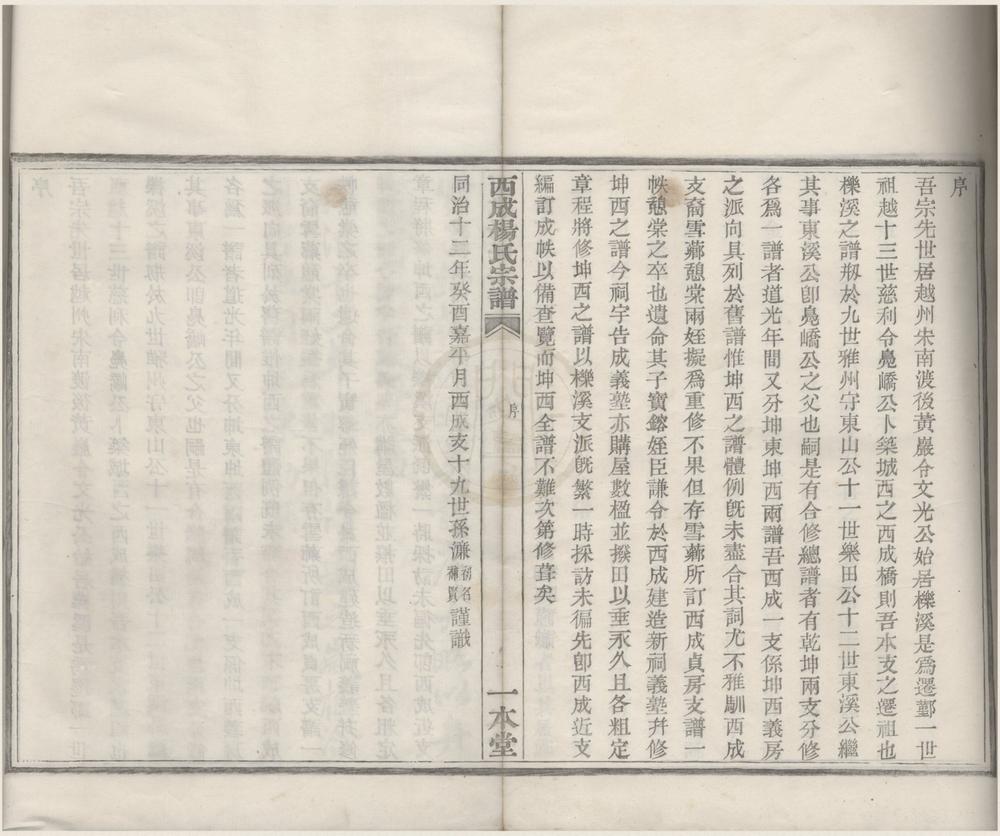 序
吾宗先世居越州宋南渡後黃巖令文光公始居櫟溪是爲遷鄞一世
祖越十三世慈利令鳧嶠公卜築城西之西成橋則吾本支之遷祖也
櫟溪之譜刱於九世雅州守東山公十一世樂田公十二世東溪公繼
其事東溪公卽鳧嶠公之父也嗣是有合修總譜者有乾坤兩支分修
各爲一譜者道光年間又分坤東坤西兩譜吾西成一支係坤西義房
之派向具列於舊譜惟坤西之譜體例旣未盡合其詞尤不雅馴西成
支裔雪薌憩棠兩姪擬爲重修不果但存雪薌所訂西成貞房支譜一
帙憩棠之卒也遺命其子寶鎔姪臣謙令於西成建造新祠義塾幷修
坤西之譜今祠宇告成義塾亦購屋數楹並撥田以垂永久且各粗定
章程將修坤西之譜以櫟溪支派旣繁一時採訪未徧先卽西成近支
編訂成帙以備查覽而坤西全譜不難次第修葺矣
同治十二年癸酉嘉平月西成支十九世孫濂初名謹識
西成楊氏宗譜
序
一本堂